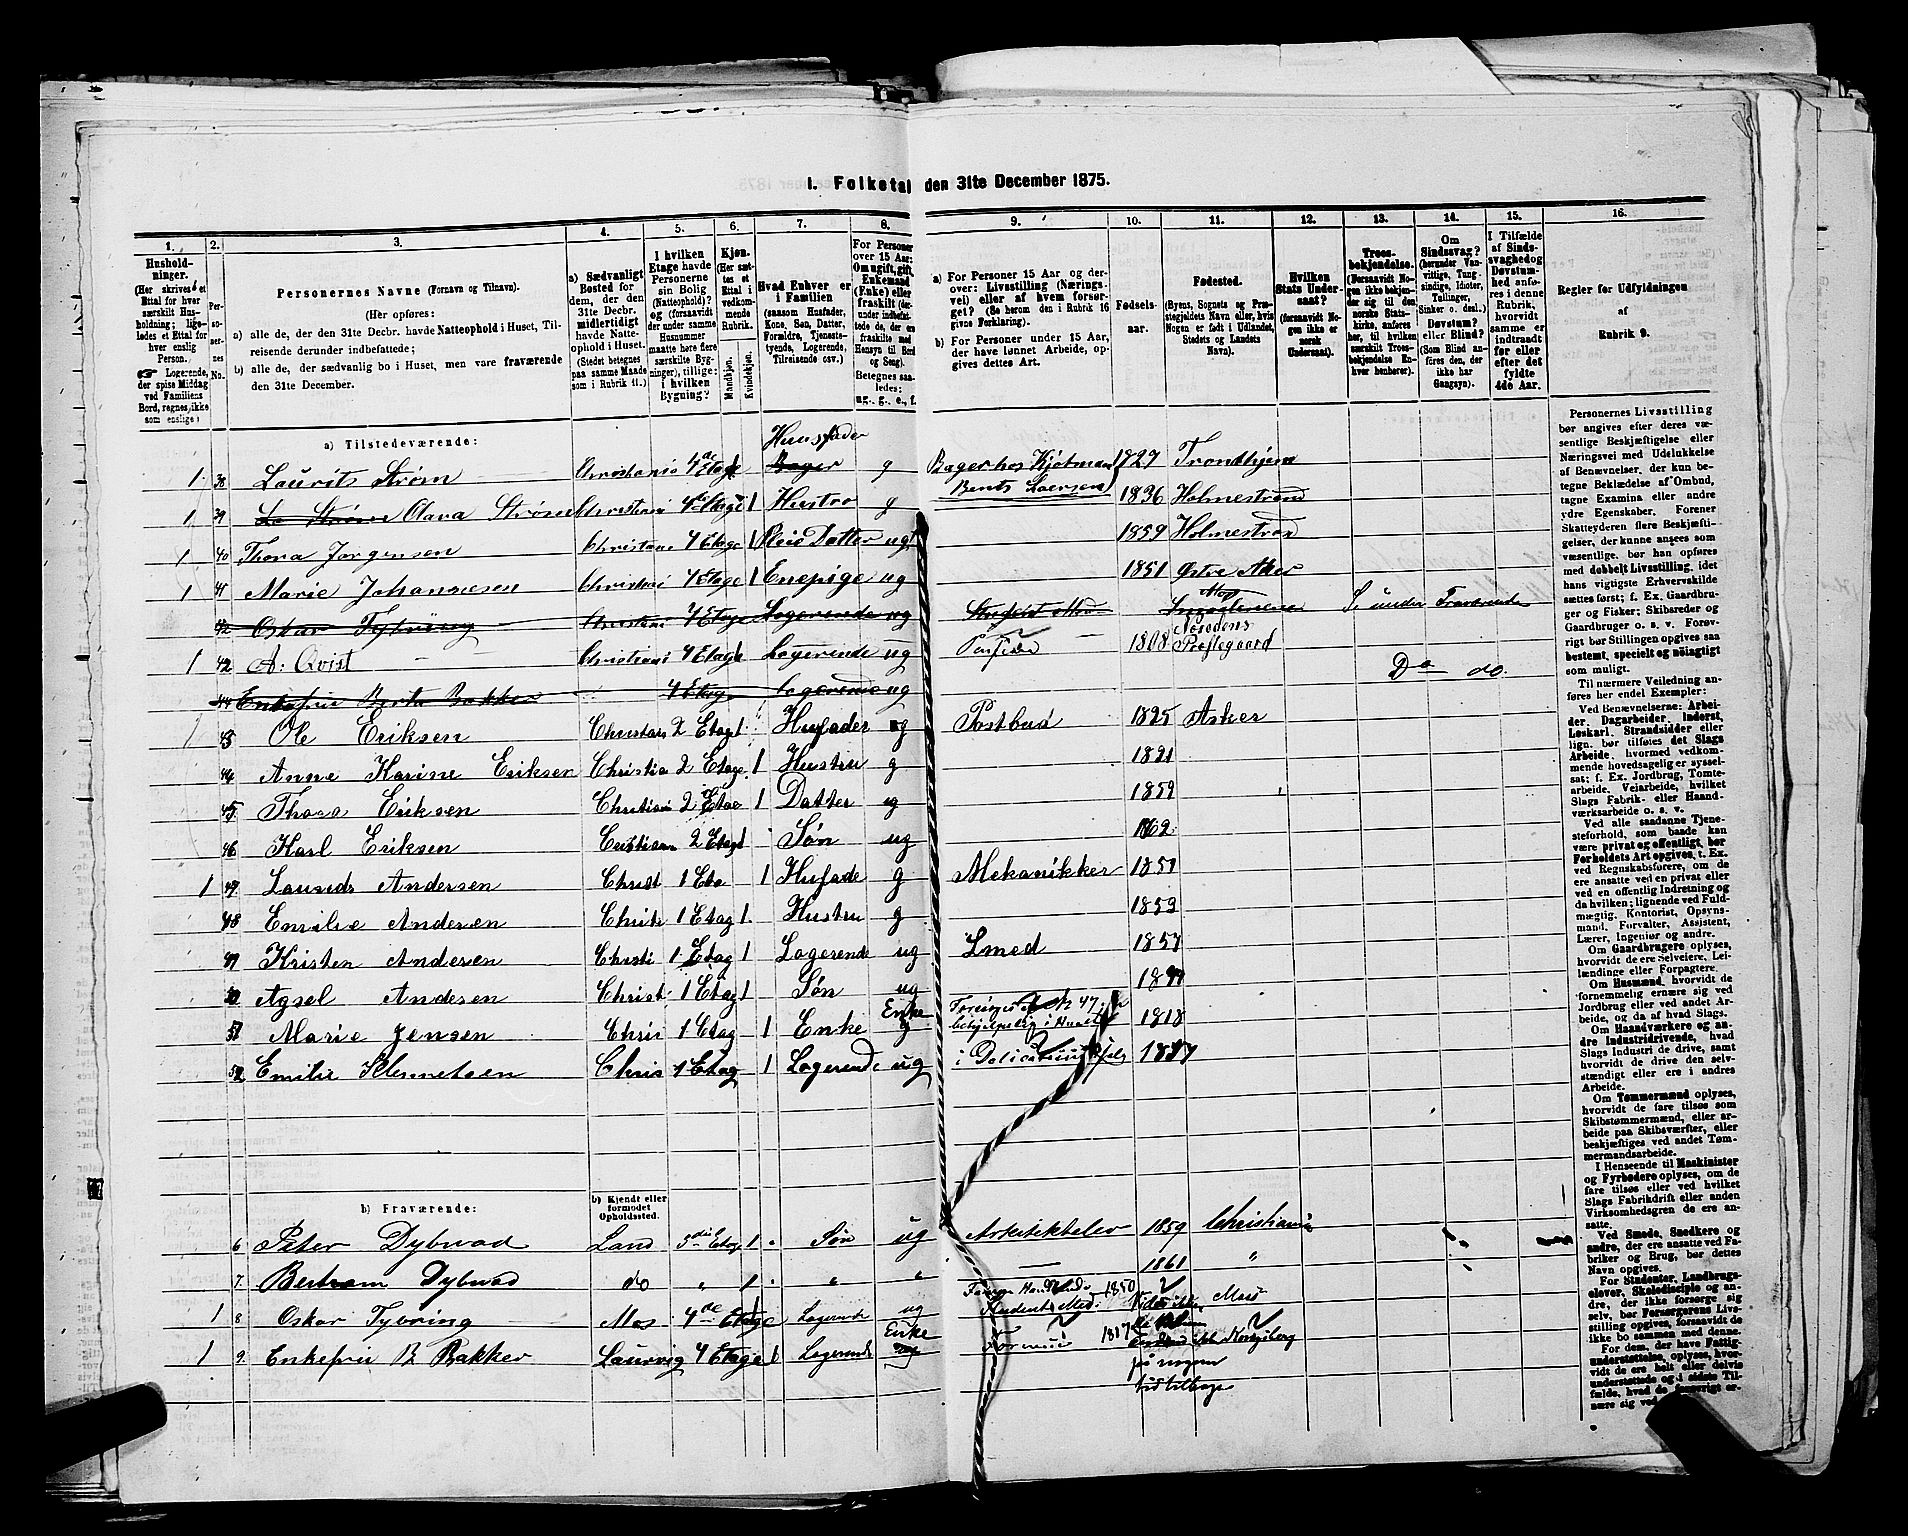 1. Folketal den 31te December 1875.
1. 2. 3. 4. 5. 6. 7. 8. 9. 10. 11. 12. 13. 14. 15. 16.
Husholdninger.
(Her skrives et Ettal for hver særskilt Husholdning; ligeledes et Ettal for hver enslig Person.
Logerende, der spise Middag ved Familiens Bord, regnes ikke som enslige)
Personernes No.
Personernes Navne (Fornavn og Tilnavn).
(Her opføres:
a) alle de, der den 31te Decbr. havde Natteophold i Huset, Tilreisende derunder indbefattede;
b) alle de, der sædvanlig bo i Huset, men vare fraværende den 31te December.
a) Sædvanligt Bosted for dem, der den 31te Decbr. midlertidigt havde Natteophold i Huset.
(Stedet betegnes paa samme Maade som i Rubrik 11.)
I hvilken Etage havde Personerne sin Bolig (Natteophold)? og (forsaavidt der under samme Husnummer maatte høre flere særskilte Bygninger), tillige: i hvilken Bygning?
Kjøn.
(Her sættes et Ettal i vedkommende Rubrik.
Mandkjøn.
Kvindekjøn.
Hvad Enhver er i Familien
(saasom Husfader, Kone, Søn, Datter, Forældre, Tjenestetyende, Logerende, Tilreisende osv.)
For Personer over 15 Aar: Om ugift, gift, Enkemand (Enke) eller fraskilt
Betegnes saaledes: ug., g., e., f.
a) For Personer 15 Aar og derover: Livsstilling (Næringsvei) eller af hvem forsørget? (Se herom den i Rubrik 16 givne Forklaring).
b) For Personer under 15 Aar, der have lønnet Arbeide, opgives dettes Art.
Fødselsaar.
Fødested.
(Byens, Sognets og Præstegjeldets Navn eller, hvis Nogen er født i Udlandet, Stedets og Landets Navn).
Hvilken Stats Undersaat?
(Forsaavidt Nogen ikke er norsk Undersaat).
Troesbekjendelse.
(Forsaavidt Nogen ikke bekjender sig til den norske Statskirke, anføres her, til hvilken særskilt Troesbekjendelse Enhver henhører).
Om Sindssvag? (herunder Vanvittige, Tungsindige, Idioter, Tullinger, Sinker o. desl.) Døvstum? eller Blind?
(Som Blind anføres den, der ikke har Gangsyn).
I Tilfælde af Sindssvaghed og Døvstumhed anføres i denne Rubrik, hvorvidt samme er indtraadt før eller efter det fyldte 4de Aar.
Regler for Udfyldningen af Rubrik 9.
a) Tilstedeværende:
1 38 Laurits Strøm Christania 4de Etage Huusfader Bager g Bager hos Kjøbmand Bents Laersen 1827 Trondhjem
1 39 Clara Strøm Christiani 4de Etage 1 Hustro g 1836 Holmestrand
1 40 Thora Jorgensen Christiani 4 Etage 1 Pleie Datter ugt 1859 Holmestran
1 41 Marie Johannesen Christiani 4 Etage 1 Enepige ug 1851 Østre Aker
42 Oskar Tybring Christiani 4 Etage Logerende ug Student Med
1 42 A: Qvist Christiani 4 Etage Logerende ug 1808 Næsodens Præstegaard
44 Enkefrue Berta Bakker 4 Etage Logerende ug Do do.
1 43 Ole Eriksen Christian 2 Etage 1 Hufader g Postbud 1825 Asker
44 Anne Karine Eriksen Christia 2 Etage 1 Hustru g 1821
45 Thora Eriksen Christian 2 Etae 1 Datter ug 1859
46 Karl Eriksen Cristian 2 Etage 1 Søn ug 1862
1 47 Lauride Andersen Christ 1 Eta 1 Hufade g Mekanikker 1851
48 Emilie Andersen Christi 1 Etag 1 Hustru g 1853
49 Kristen Andersen Christi 1 Etag 1 Logerende ug Smed 1857
50 Agsel Andesen Christ 1 Etag 1 Søn ug
51 Marie Jensen Chris 1 Etag 1 Enke Enke 1818
52 Emilie Klemetsen Chris 1 Etag 1 Logerend ug
b) Fraværende:
b) Kjendt eller formodet Opholdssted.
6 Peter Dybwad Land 5die Etag 1 Søn ug Arkitektelev 1859 Christiania
7. Bertram Dybwad do " 1 " " 1861 "
1 8 Oskar Tybring Mos 4de Etage Logerende ug Student Med: 1850 Mos
1 9. Enkefru B Bakker Laurvig 4 Etage 1 Logerende Enke 1817 Kongsberg
på nogen tid tilbage
Personernes Livsstilling bør angives efter deres væsentlige Beskjæftigelse eller Næringsvei med Udelukkelse af Benævnelser, der kun betegne Beklædelse af Ombud, tagne Examina eller andre ydre Egenskaber. Forener Skatteyderen flere Beskjæftigelser, der kunne ansees som væsentlige, bør han opføres med dobbelt Livsstilling, idet hans vigtigste Erhvervskilde sættes først; f. Ex. Gaardbruger og Fisker; Skibsreder og Gaardbruger o. s. v. Forøvrigt bør Stillingen opgives saa bestemt, specielt og nøiagtigt som muligt.
Til nærmere Veiledning anføres her endel Exempler:
Ved Benævnelserne: Arbeider, Dagarbeider, Inderst, Løskarl, Strandsidder eller lign. bør tilføies det Slags Arbeide, hvormed vedkommende hovedsagelig er sysselsat; f. Ex. Jordbrug, Tomtearbeide, Veiarbeide, hvilket Slags Fabrik- eller Haandværksarbeide o. s. v.
Ved alle saadanne Tjenesteforhold, som baade kan være privat og offentligt, bør Forholdets Art opgives, t. Ex. ved Regnskabsførere, om de ere ansatte ved en privat eller ved en offentlig Indretning og da hvilken; lignende ved Fuldmægtig, Kontorist, Opsynsmand, Forvalter, Assistent, Lærer, Ingeniør og andre.
Om Gaardbrugere oplyses, hvorvidt de ere Selveiere, Leilændinge eller Forpagtere.
Om Husmænd, hvorvidt de fornemmelig ernære sig ved Jordbrug eller ved andet Arbeide, og da af hvad Slags.
Om Haandværkere og andre Industridrivende, hvad Slags Industri de drive, samt hvorvidt de drive den selvstændigt eller ere i andres Arbeide.
Om Tømmermænd oplyses, hvorvidt de fare tilsøs som Skibstømmermænd, eller arbeide paa Skibsværfter, eller beskjæftiges ved andet Tømmermandsarbeide.
I Henseende til Maskinister og Fyrbødere oplyses, om de fare tilsøs eller ved hvilket Slags Fabrikdrift eller anden Virksomhedsgren de ere ansatte.
Ved Smede, Snedkere og andre, der ere ansatte ved Fabriker og Brug, bør dettes Navn opgives.
For Studenter, Landbrugselever, Skoledisciple og andre, der ikke forsørge sig selv, bør Forsørgerens Livsstilling opgives, forsaavidt de ikke bo sammen med denne.
For dem, der have Fattigunderstøttelse, oplyses, hvorvidt de ere helt eller delvis understøttede